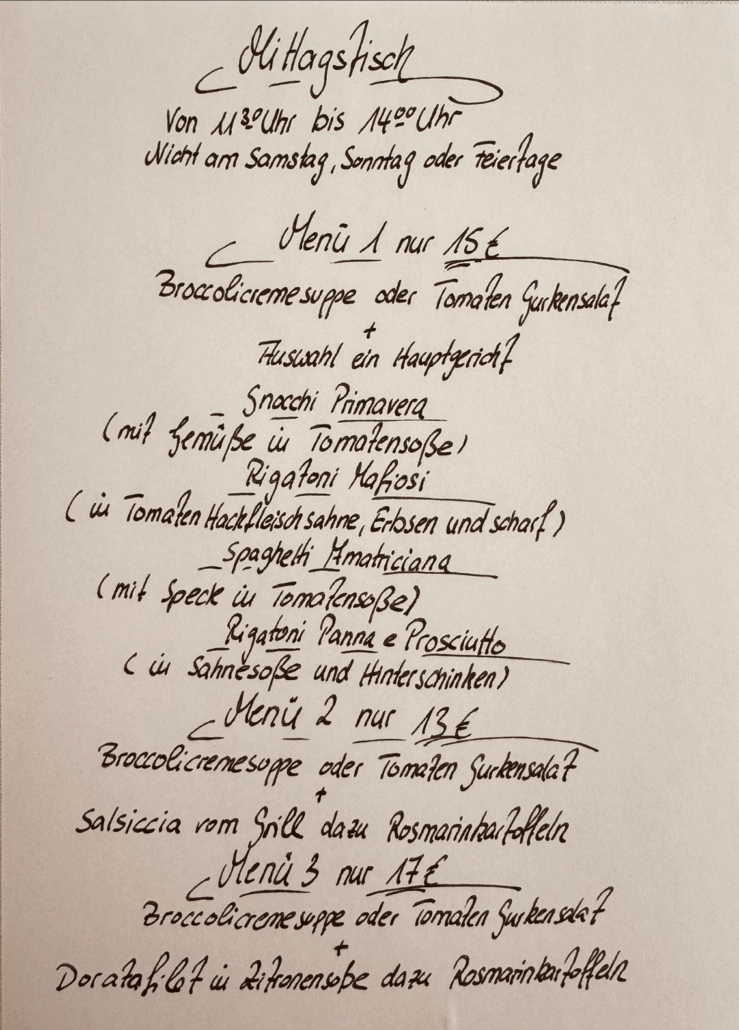 Mittagstisch
Von 11³⁰ Uhr bis 14⁰⁰ Uhr
Nicht am Samstag, Sonntag oder Feiertage
Menü 1 nur 15 €
Broccolicremesuppe oder Tomaten Gurkensalat
+
Auswahl ein Hauptgericht
Gnocchi Primavera
(mit Gemüße in Tomatensoße)
Rigatoni Mafiosi
(in Tomaten Hackfleischsahne, Erbsen und scharf)
Spaghetti Amatriciana
(mit Speck in Tomatensoße)
Rigatoni Panna e Prosciutto
(in Sahnesoße und Hinterschinken)
Menü 2 nur 13 €
Broccolicremesuppe oder Tomaten Gurkensalat
+
Salsiccia vom Grill dazu Rosmarinkartoffeln
Menü 3 nur 17 €
Broccolicremesuppe oder Tomaten Gurkensalat
+
Doratafilet in Zitronensoße dazu Rosmarinkartoffeln